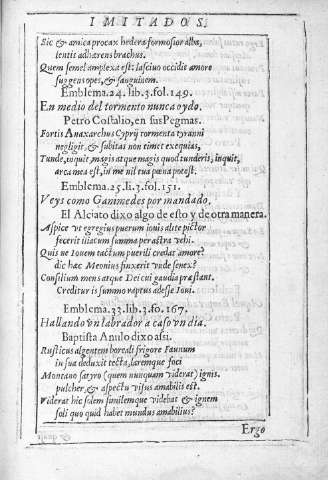 IMITADOS.
Sic & amica procax hedera formosior alba,
lentis adhærens brachus.
Quem semel amplexa est: lasciuo occidit amore
suggens opes, & sanguinem.
Emblema.24. lib.3.fol.149.
En medio del tormento nunca oydo.
Petro Costalio, en sus Pegmas.
Fortis Anaxarchus Cyprij tormenta tyranni
negligit, & subitas non timet exequias,
Tunde, inquit, magis atque magis quod tunderis, inquit,
arca mea est, in me nil tua pœna potest.
Emblema.25.li.3.fol.151.
Veys como Ganimedes por mandado.
El Alciato dixo algo de esto y de otra manera.
Aspice vt egregius puerum iouis alite pictor
fecerit iliacum summa per astra vehi.
Quis ne Iouem tactum puerili credat amore?
dic hæc Meonius finxerit vnde senex?
Consilium mens atque Dei cui gaudia præstant.
Creditur is summo raptus adesse Ioui.
Emblema.33.lib.3.fo.167.
Hallando vn labrador a caso vn dia.
Baptista Anulo dixo assi.
Rusticus algentem boreali frigore Faunum
in sua deduxit tecta, laremque foci
Montano satyro (quem nunquam viderat) ignis.
pulcher, & aspectu visus amabilis est.
Viderat hic solem similemque videbat & ignem
soli quo quid habet mundus amabilius?
Ergo